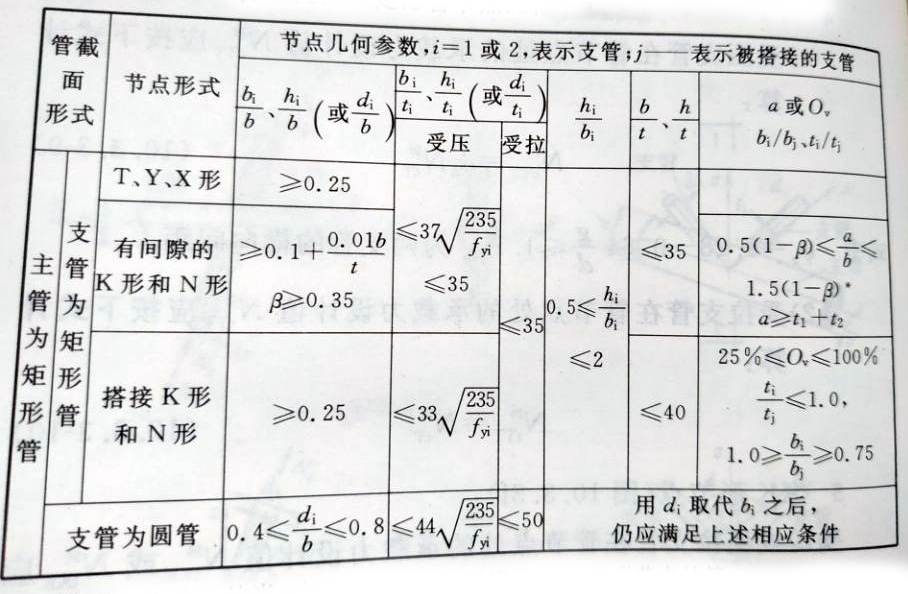 管截面形式
节点形式
节点几何参数,i=1 或 2,表示支管;j 表示被搭接的支管
b_i/b、h_i/b (或 d_i/b)
b_i/t_i、h_i/t_i (或 d_i/t_i)
受压
受拉
h_i/b_i
b/t、h/t
a 或 O_v
b_i/b_j、t_i/t_j
主管为矩形管
支管为矩形管
T、Y、X 形
≥0.25
有间隙的
K 形和 N 形
≥0.1+0.01b/t
β≥0.35
≤37√(235/f_yi)
≤35
≤35
0.5≤h_i/b_i
≤2
≤35
0.5(1-β)≤a/b≤
1.5(1-β)*
a≥t_1+t_2
搭接 K 形
和 N 形
≥0.25
≤33√(235/f_yi)
≤40
25%≤O_v≤100%
t_i/t_j≤1.0,
1.0≥b_i/b_j≥0.75
支管为圆管
0.4≤d_i/b≤0.8
≤44√(235/f_yi)
≤50
用 d_i 取代 b_i 之后,
仍应满足上述相应条件